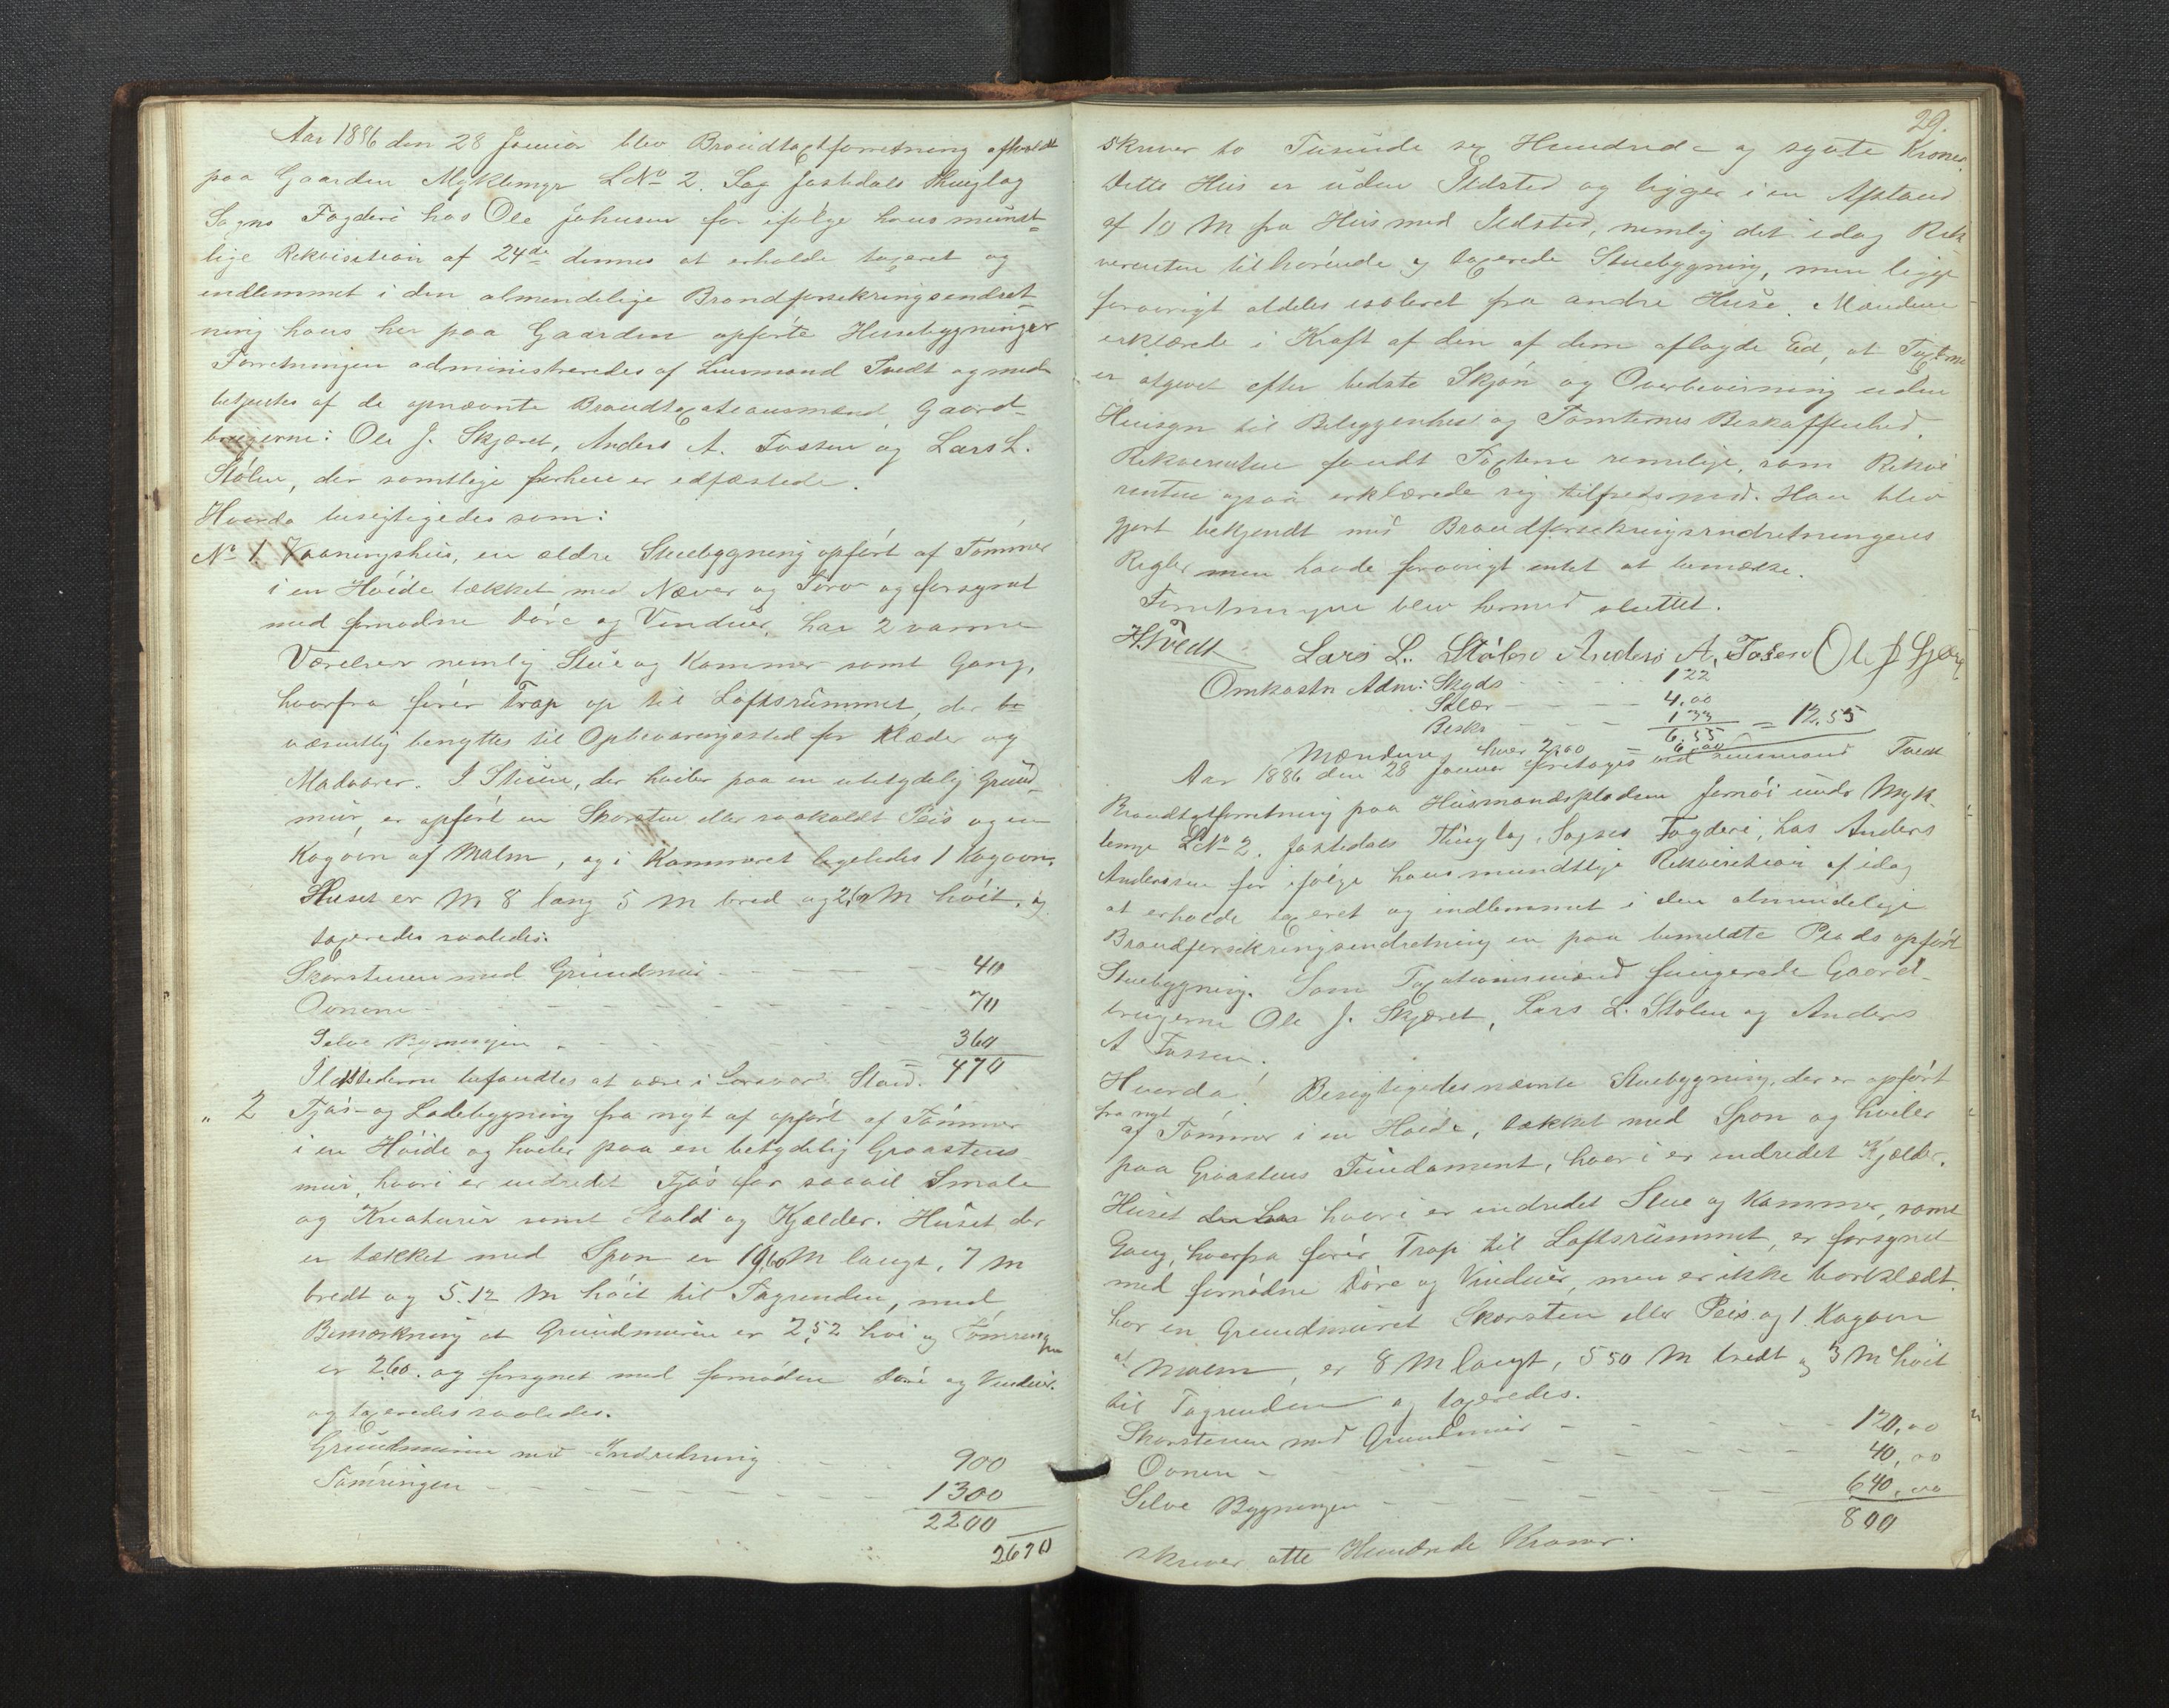 Aar 1886 den 28 Januar blev Brandtaxtforretning afholdt
paa Gaarden Myklemyr LNo 2. Jostedals Thinglag
Sogns Fogderi hos Ole Johnsen for ifølge hans mundt-
lige Rekvisition af 24de dennes at erholde taxeret og
indlemmet i den almendelige Brandforsikringsindret-
ning hans her paa Gaarden opførte Husebygninger
Forretningen administreredes af Lensmand Tvedt og med
betjentes af de opnævnte Brandtaxationsmænd Gaard-
brugerne: Ole J. Skjæret, Anders A. Fossen og Lars L.
Stölen, der samtlige forhen er edfæstede.
Hvorda besigtigedes som:
No 1. Vaaningshus, en ældre Stuebygning opført af Tømmer
i en Höide tækket med Næver og Torv og forsynet
med fornødne Döre og Vinduer, har 2 varme
Værelser nemlig Stue og Kammer samt Gang,
hvorfra förer Trap op til Loftsrummet, der be
væsentlig benyttes til Opbevaringssted for Klæder og
Madvarer. I Stuen, der hviler paa en ubetydelig Grund-
mur, er opført en Skorsten eller saakaldt Peis og en
Kogovn af Malm, og i Kammeret ligeledes 1 Kogovn.
Huset er M 8 lang 5 M bred og 2,60 M höit. og
taxeredes saaledes:
Skorstenen med Grundmur - - - 40
Ovnene - - - 70
Selve Bygningen - - - 360
Ildstederne befandtes at være i forsvarl Stand. = 470
" 2 Fjös- og Ladebygning fra nyt af opført af Tömmer
i en Höide og hviler paa en betydelig Graastens
mur, hvori er indredet Fjös for saavel Smale
og Kreaturer samt Stald og Kjælder. Huset der
er tækket med Spon er 19,60 M langt, 7 M
bredt og 5.12 M höit til Tagrenden, med
Bemærkning at Grundmuren er 2,52 höi og Tömringen
er 2.60. og forsynet med fornødne Döre og Vinduer.
og taxeredes saaledes.
Grundmuren med Indredning - - - 900
Tömringen - - - 1300
2200
2670
29.
skriver to Tusinde sex Hundrede og sytte Kroner.
Dette Hus er uden Ildsted og ligger i en Afstand
af 10 M fra Hus med Ildsted, nemlig det idag Rek
verenten tilhørende og taxerede Stuebygning, men ligger
forøvrigt aldeles isoleret fra andre Huse. Mændene
erklærede i Kraft af den af dem aflagde Ed, at Taxterne
er afgivet efter bedste Skjön og Overbevisning uden
Hensyn til Beliggenhed og Tomternes Beskaffenhed.
Rekverenten fandt Taxterne rimelige, som Rekvi
renten ogsaa erklærede sig tilfreds med. Han blev
gjort bekjendt med Brandforsikringsindretningens
Regler men havde forøvrigt intet at bemærke.
Forretningen blev hermed sluttet.
H. Tvedt Lars L. Stölen Anders A. Fossen Ole J Skjæret
Omkostn Adm: Skyds - - - 1 22
Salær - - - 4.00
Besks - - - 1 33
6.55 = 12.55
Mændene hver 2.00 = 6.00
Aar 1886 den 28 Januar foretoges ved Lensmand Tvedt
Brandtaxtforretning paa Husmandspladsen under Myk-
lemyr LNo 2, Jostedals Thinglag, Sogns Fogderi, hos Anders
Anderssen for ifølge hans mundtlige Rekvisition af idag
at erholde taxeret og indlemmet i den almindelige
Brandforsikringsindretning en paa bemeldte Plads opført
Stuebygning. Som Taxationsmænd fungerede Gaard-
brugerne Ole J. Skjæret, Lars L. Stölen og Anders
A Fossen.
Hvorda! Besigtigedes nævnte Stuebygning, der er opført
fra nyt
af Tömmer i en Höide, tækket med Spon og hviler
paa Graastens Fundament, hvori er indredet Kjælder.
Huset der har hvori er indredet Stue og Kammer, samt
Gang, hvorfra förer Trap til Loftsrummet, er forsynet
med fornødne Döre og Vinduer, men er ikke bordklædt.
har en Grundmuret Skorsten eller Peis og 1 Kogovn
af Malm, er 8 M langt, 5 50 M bredt og 3 M höit
til Tagrenden og taxeredes.
Skorstenen med Grundmur - - - 120,00
Ovnen - - - 40,00
Selve Bygningen - - - 640,00
800
skriver otte Hundrede Kroner.